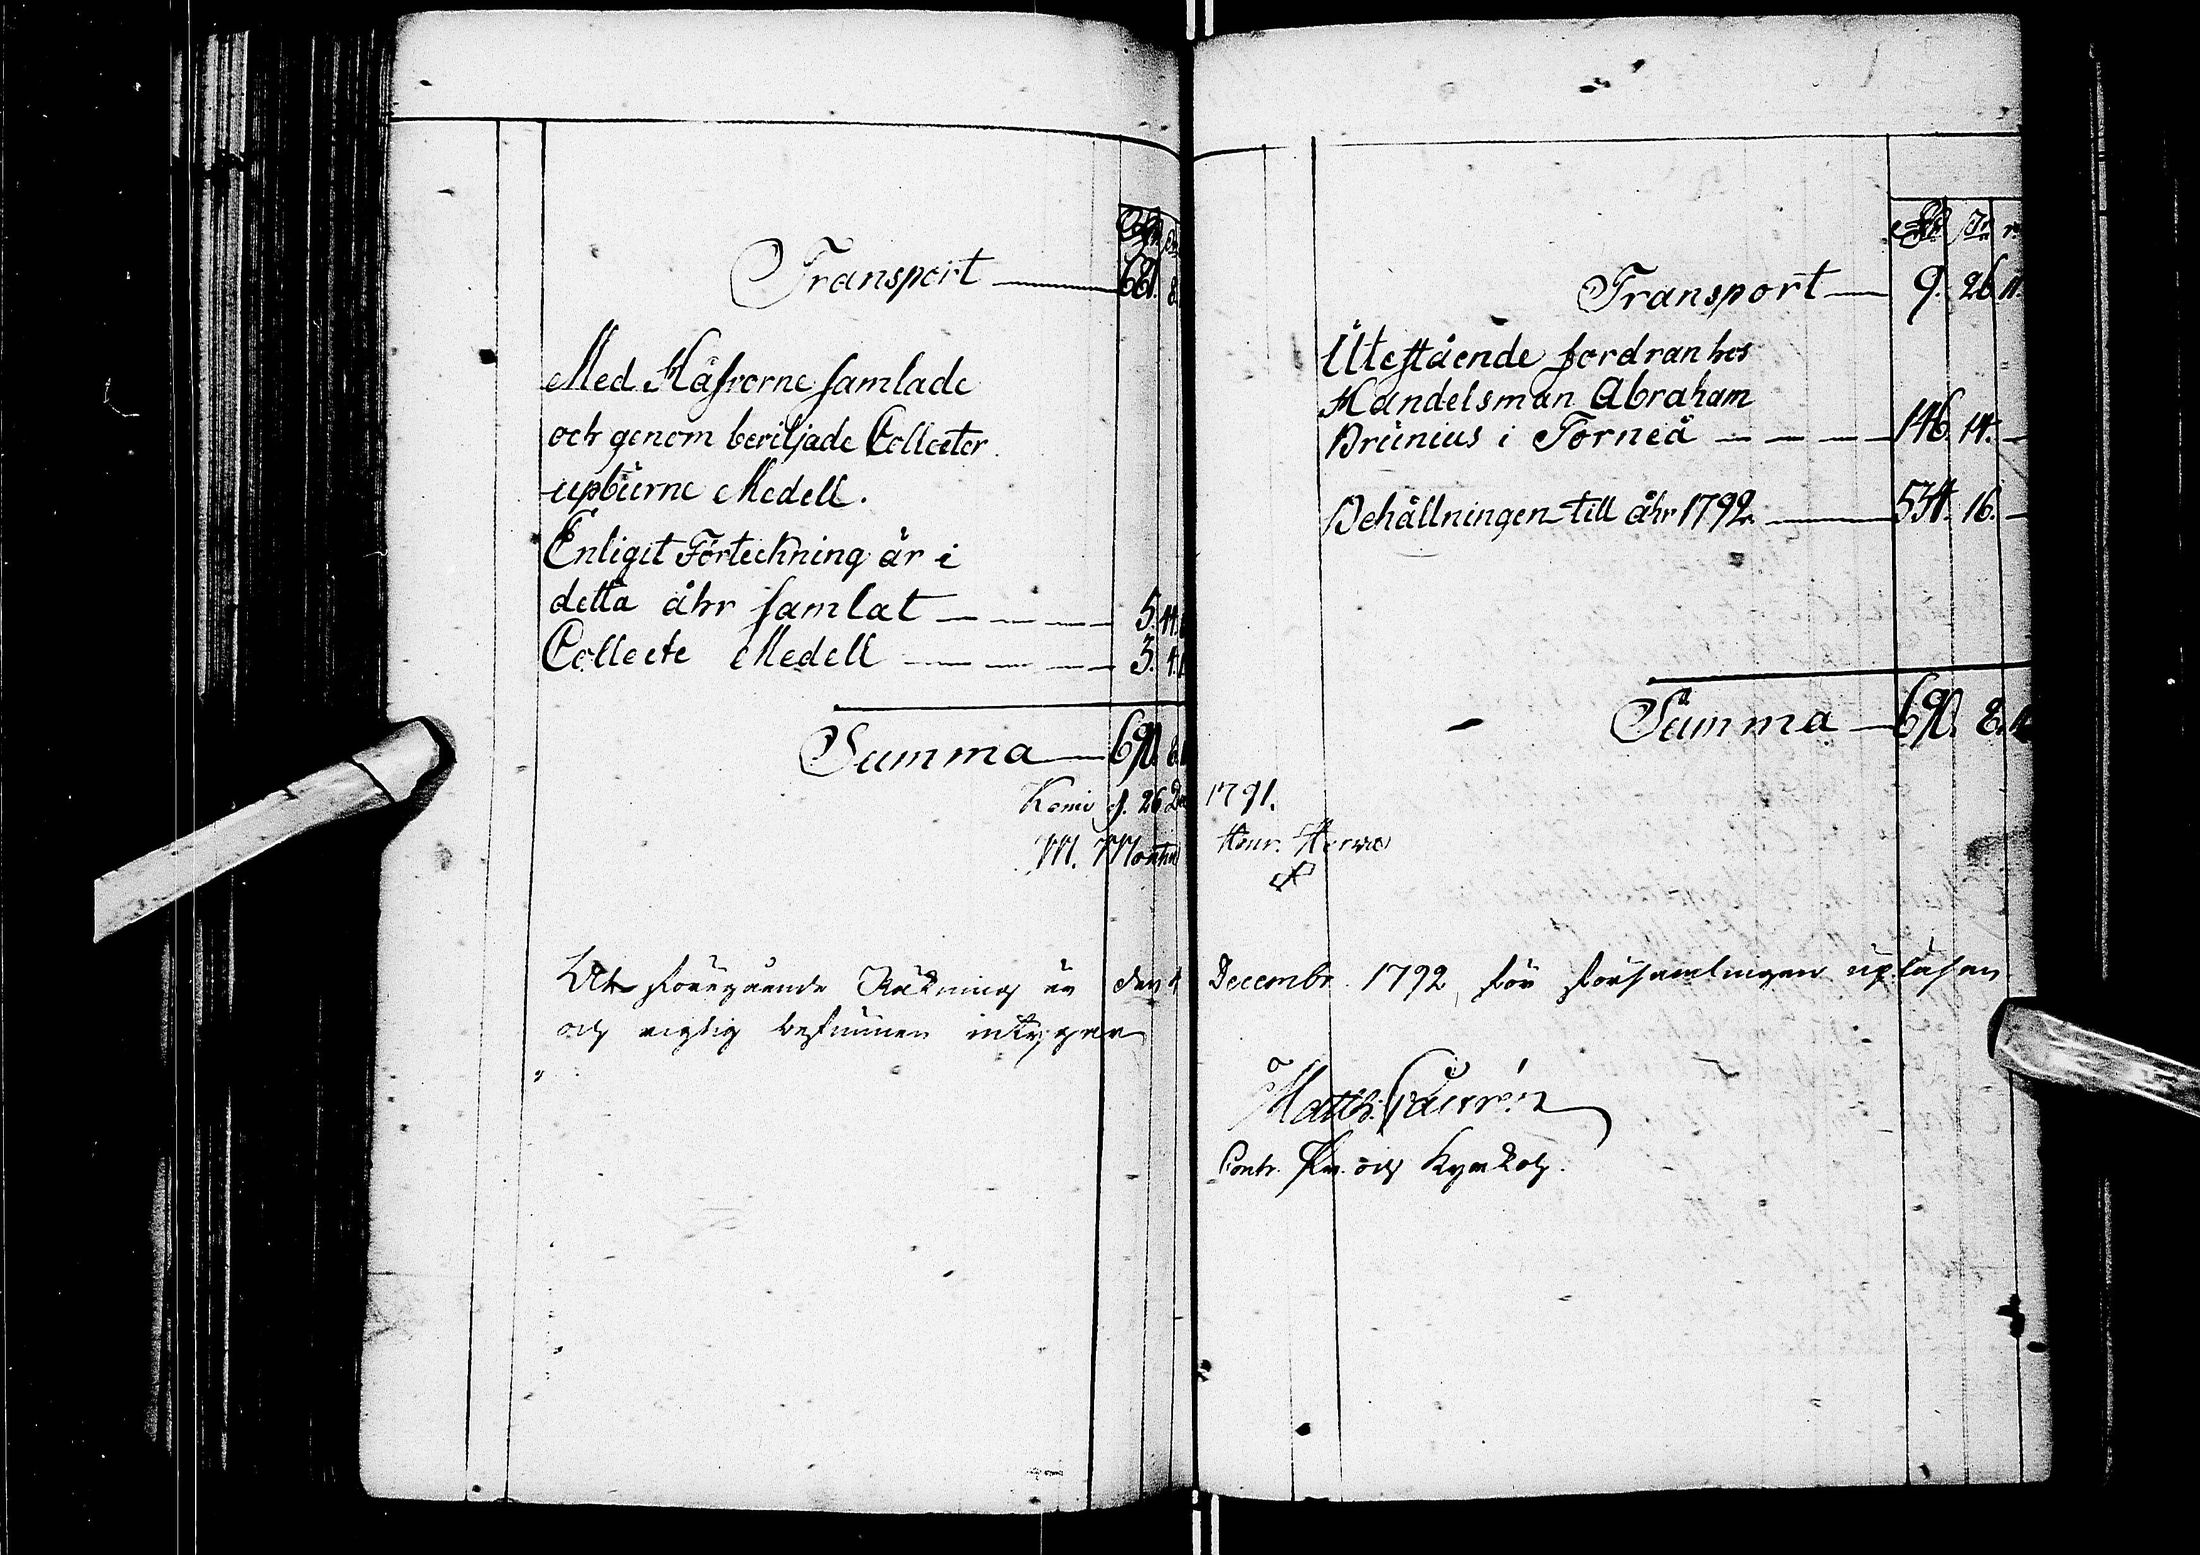 Transport — 681. 8.
Med Håfrorne samlade
och genom beviljade Collecter
upburne Medell.
Enligit Förteckning är i
detta åhr samlat — — — 5. 44.
Collecte Medell — — — 3. 4.
Summa — 690. 8.
Rdr r.
Transport — 9. 26. 11.
Utestående fordran hos
Handelsman Abraham
Brunius i Torneå — — — 146. 14. —
Behållningen till åhr 1792 — 534. 16. —
Summa — 690. 8.
Kemi d. 26 Dec 1791.
M. Henr.
At föregående Räkning är den 4 Decembr. 1792, för församlingen upläsen
och rigtig befunnen intygar
Matth.
Contr. Pr. och Kyrkoh.